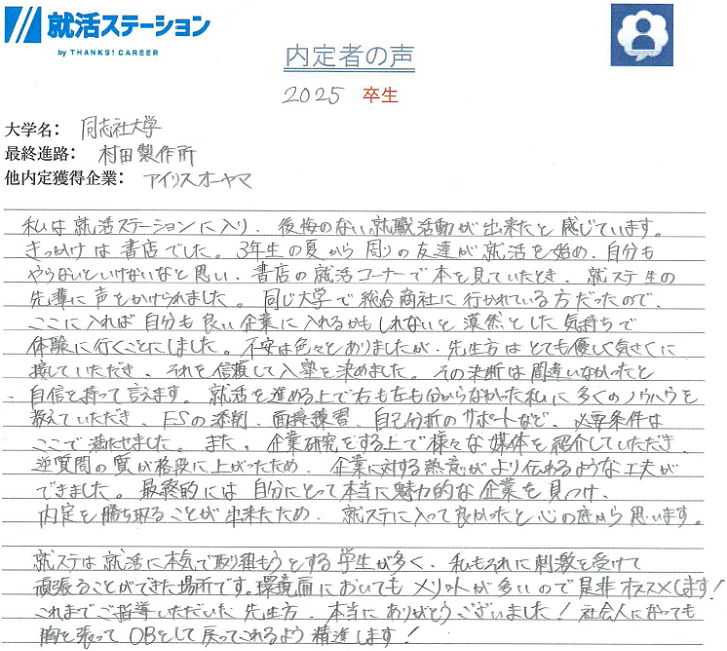 就活ステーション
by THANKS! CAREER
内定者の声
2025 卒生
大学名: 同志社大学
最終進路: 村田製作所
他内定獲得企業: アイリスオーヤマ
私は就活ステーションに入り、後悔のない就職活動が出来たと感じています。
きっかけは書店でした。3年生の夏から周りの友達が就活を始め、自分も
やらないといけないなと思い、書店の就活コーナーで本を見ていたとき、就ステ生の
先輩に声をかけられました。同じ大学で総合商社に行かれている方だったので、
ここに入れば自分も良い企業に入れるかもしれないと漠然とした気持ちで
体験に行くことにしました。不安は色々とありましたが、先生方はとても優しく気さくに
接していただき、それを信頼して入塾を決めました。その決断は間違いなかったと
自信を持って言えます。就活を進める上で右も左も分からなかった私に多くのノウハウを
教えていただき、ESの添削、面接練習、自己分析のサポートなど、必要条件は
ここで満たせました。また、企業研究をする上で様々な媒体を紹介していただき、
逆質問の質が格段に上がったため、企業に対する熱意がより伝わるような工夫が
できました。最終的には自分にとって本当に魅力的な企業を見つけ、
内定を勝ち取ることが出来たため、就ステに入って良かったと心の底から思います。
就ステは就活に本気で取り組もうとする学生が多く、私もそれに刺激を受けて
頑張ることができた場所です。環境面においてもメリットが多いので是非オススメします!
これまでご指導いただいた先生方、本当にありがとうございました!社会人になっても
胸を張ってOBとして戻ってこれるよう精進します!